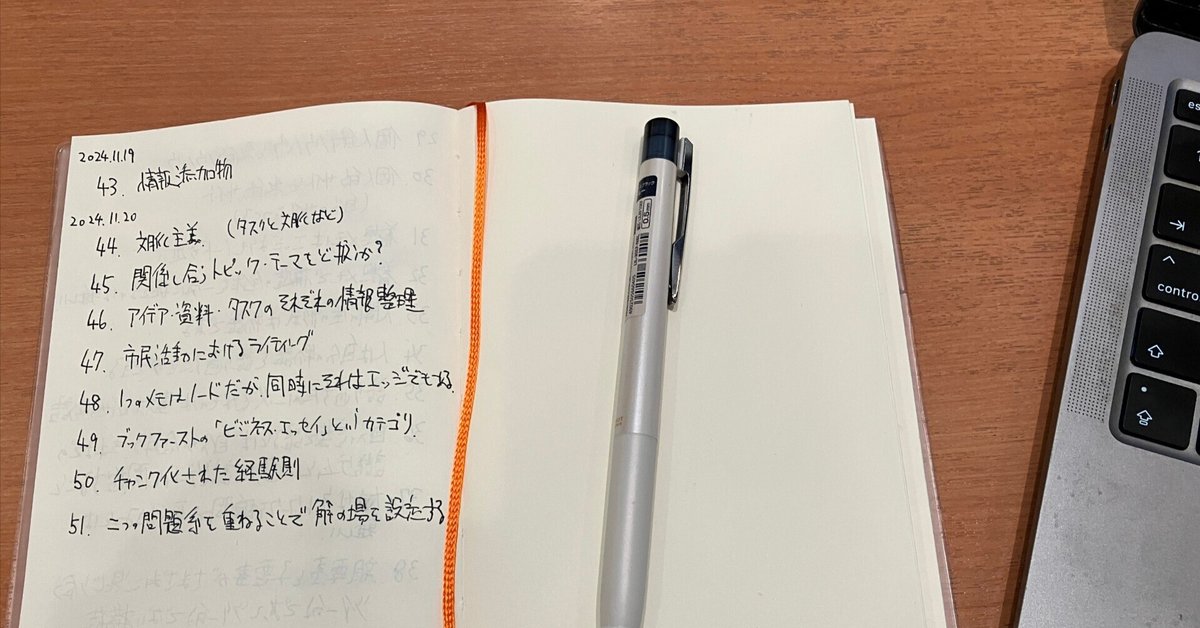 2024.11.19
43. 情報添加物
2024.11.20
44. 文脈主義. (タスクと文脈など)
45. 関係し合うトピック・テーマをどう扱うか?
46. アイデア・資料・タスクのそれぞれの情報整理
47. 市民活動におけるライティング
48. 1つのメモはノードだが、同時にそれはエッジでもある.
49. ブックファーストの「ビジネス・エッセイ」というカテゴリ.
50. チャンク化された経験則
51. 二つの問題系を重ねることで解の場を設定する
0.5mm
esc
control